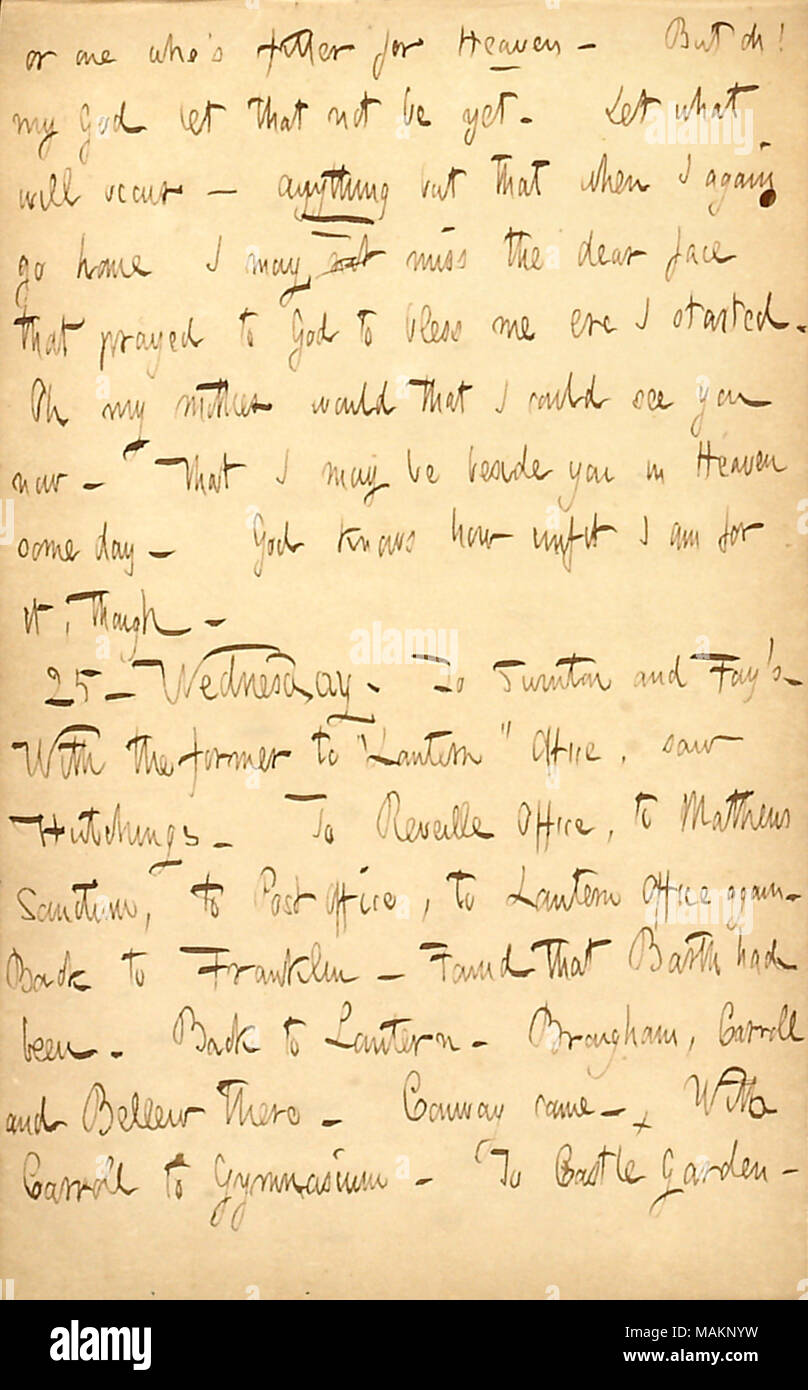 or one who's fitter for Heaven - But oh!
my God let that not be yet. Let what
will occur - anything but that when I again
go home I may not miss the dear face
that prayed to God to bless me ere I started.
Oh my mother would that I could see you
now - That I may be beside you in Heaven
some day - God knows how unfit I am for
it, though -
25 - Wednesday. To Swinton and Fay's -
With the former to "Lantern" Office, saw
Hutchings - To Reveille Office, to Mathews
Sanctum, to Post Office, to Lantern Office again -
Back to Franklin - Found that Barth had
been. Back to Lantern - Brougham, Carroll
and Bellew there - Conway came - x With
Carroll to Gymnasium - To Castle Garden -
alamy
alamy
alamy
alamy
alamy
alamy
Image ID: MAKNYW
www.alamy.com